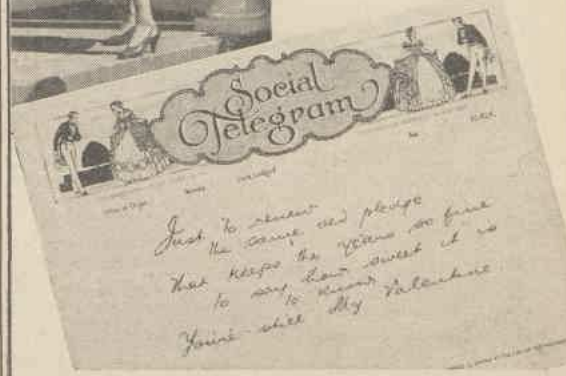 Social
Telegram
Office of Origin Words
Just to renew
the same old pledge
That keeps the years so fine
to say how sweet it is
to know
You're still My Valentine.